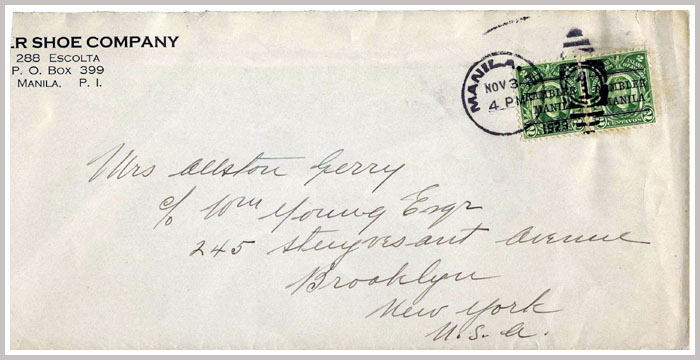 ER SHOE COMPANY
288 ESCOLTA
P. O. BOX 399
MANILA, P. I.
MANILA
NOV 3
4 PM
1
MANILA
MANILA
2 CENTAVOS 2
Mrs Allston Gerry
c/o Wm Young Esqr
245 Stuyvesant Avenue
Brooklyn
New York
U.S.A.